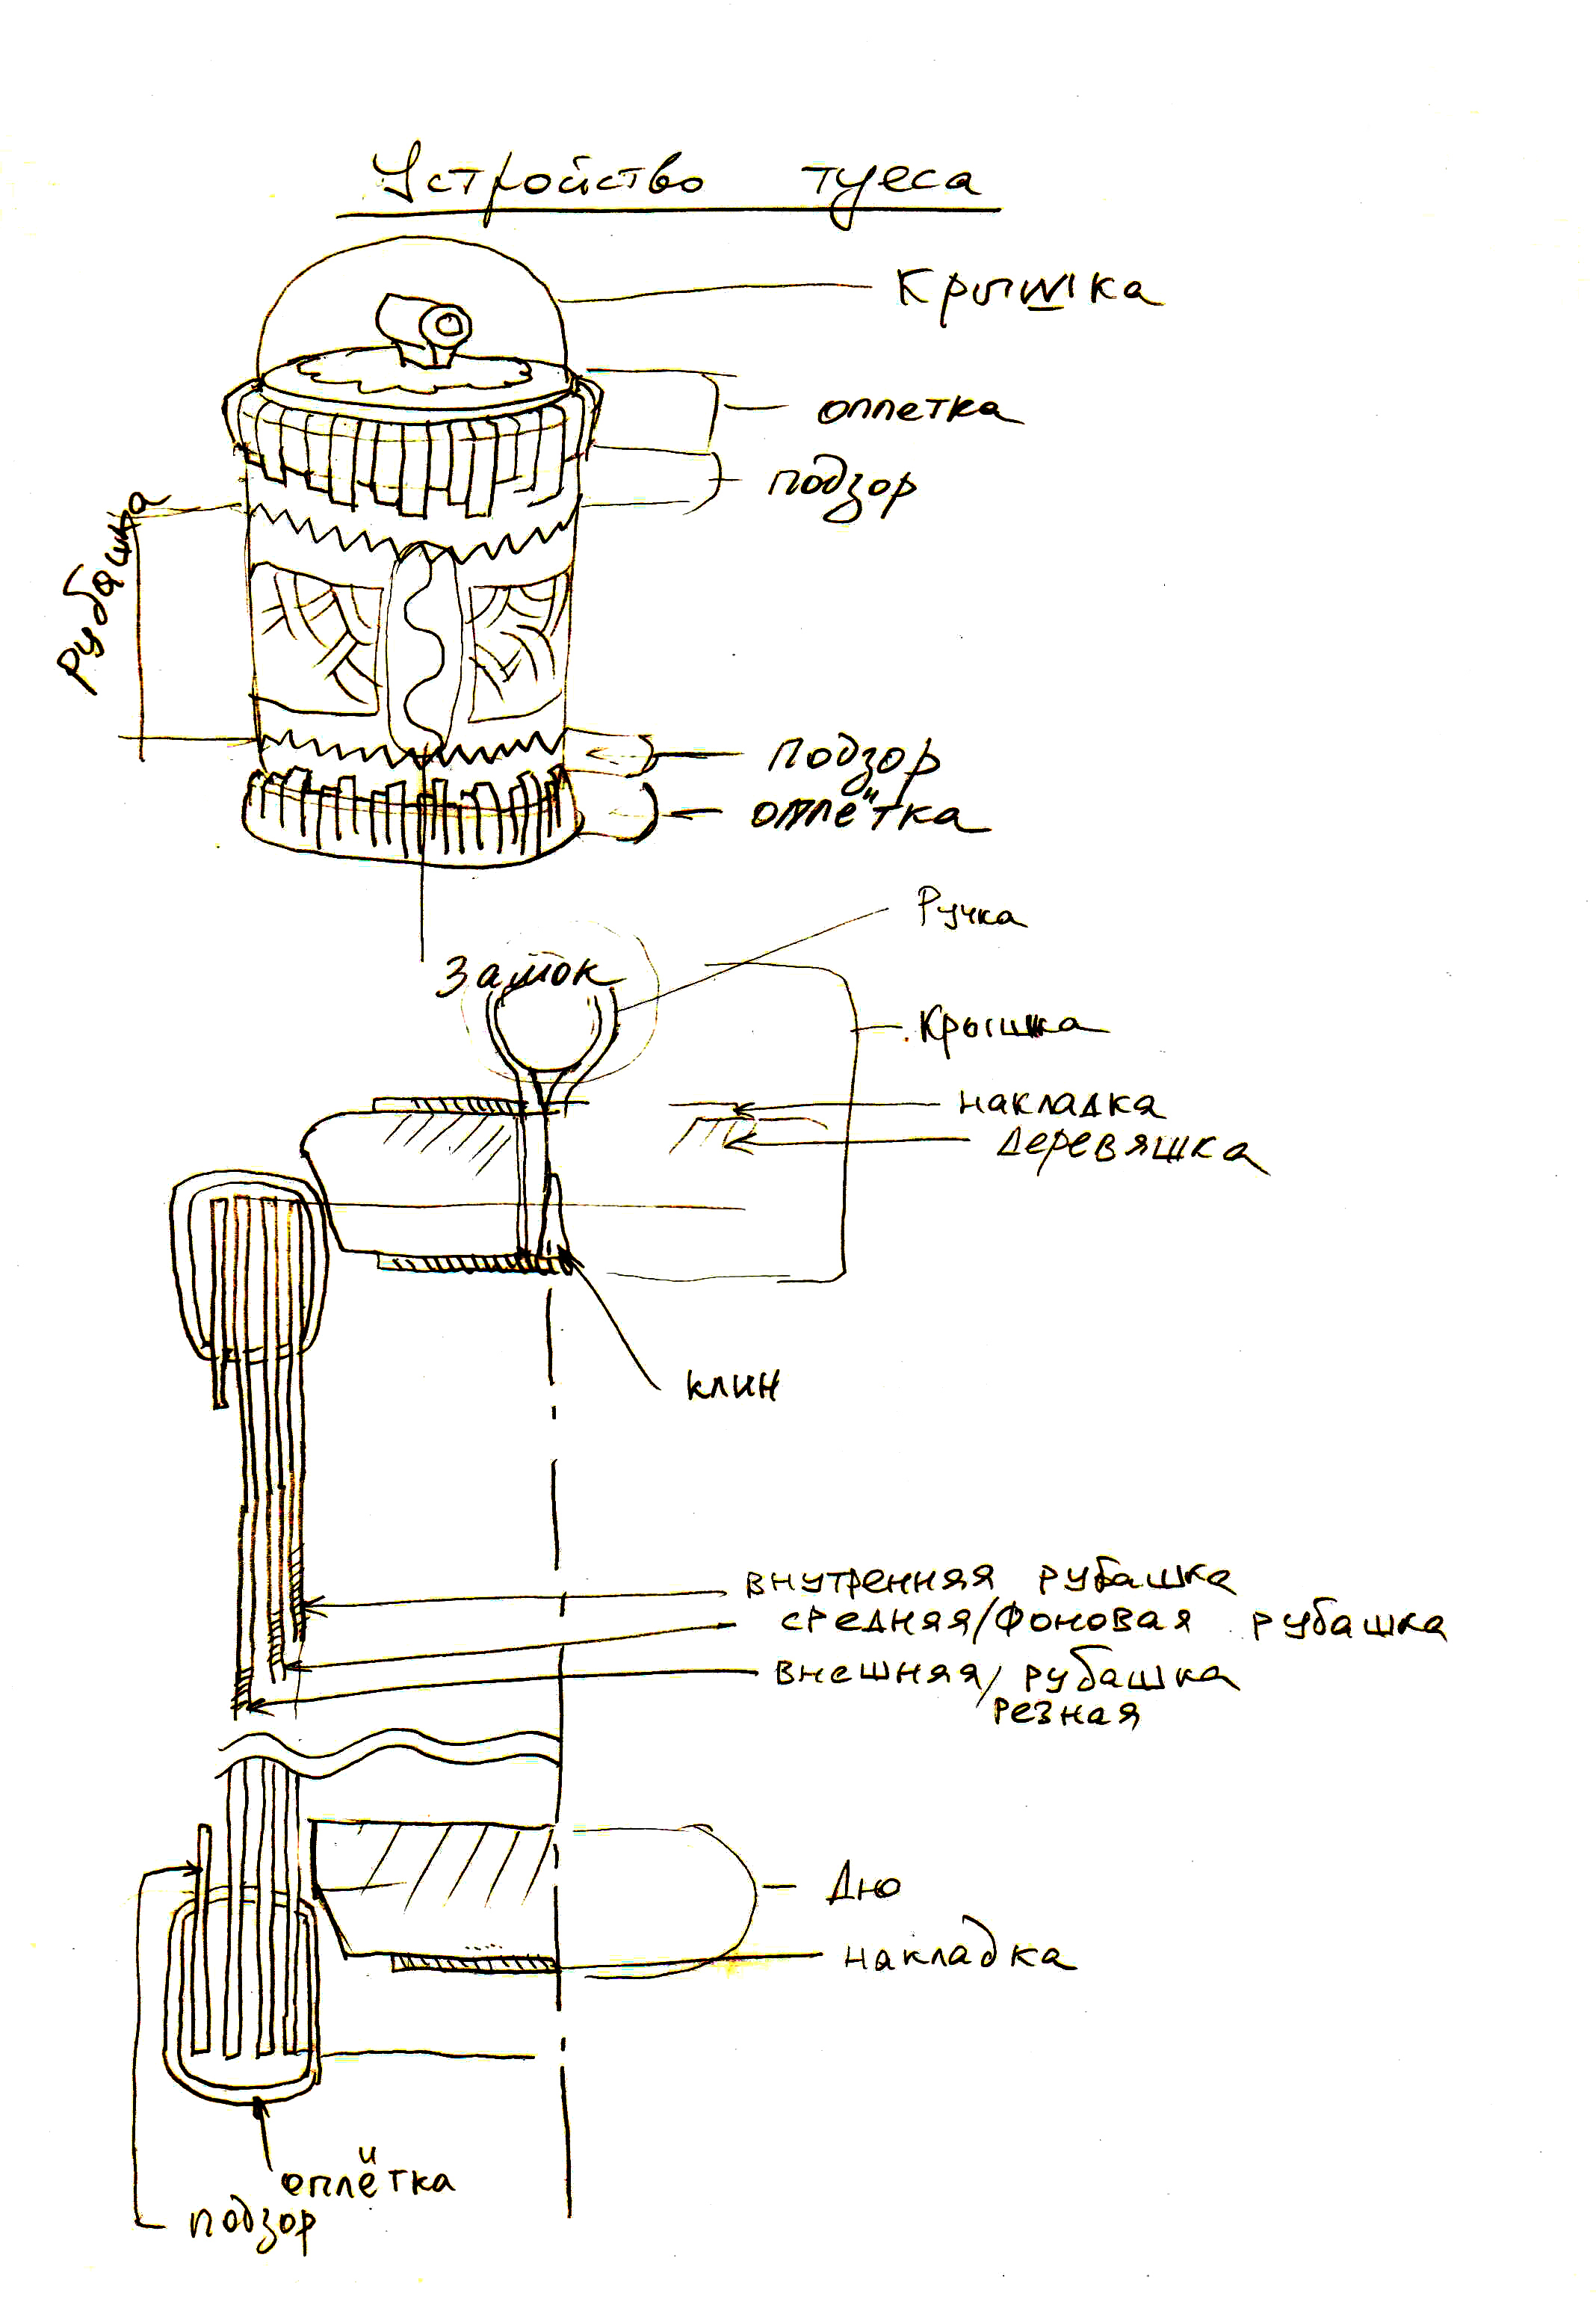 Устройство туеса
Крышка
оплетка
подзор
рубашка
подзор
оплётка
Ручка
Замок
Крышка
накладка
деревяшка
клин
внутренняя рубашка
средняя/фоновая рубашка
внешняя/рубашка
резная
Дно
накладка
оплётка
подзор